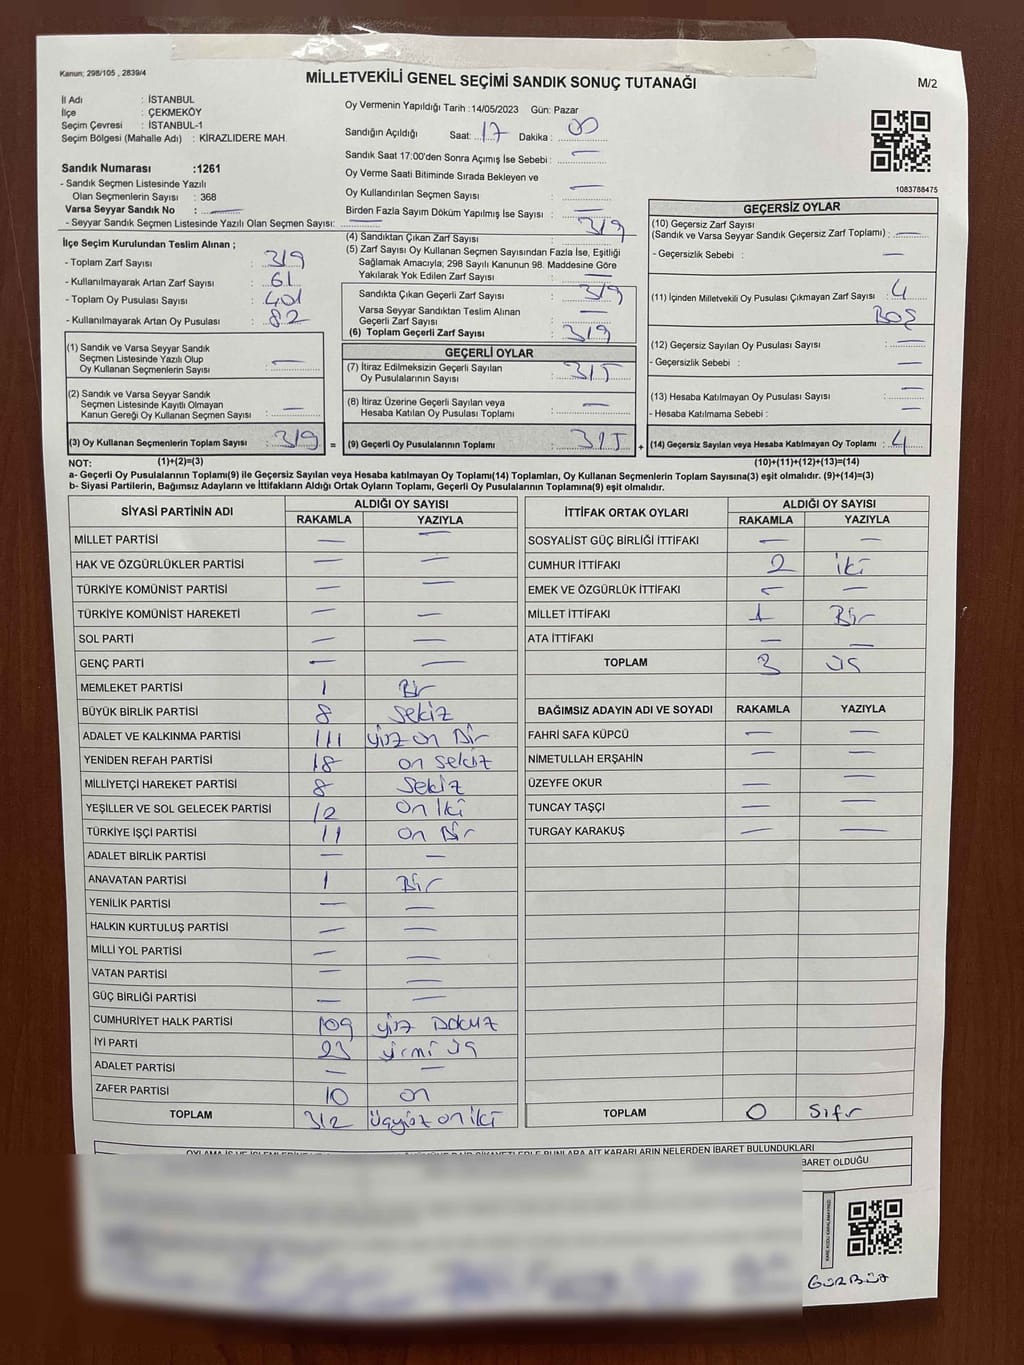 Kanun; 298/105 , 2839/4
MİLLETVEKİLİ GENEL SEÇİMİ SANDIK SONUÇ TUTANAĞI
M/2
İl Adı : İSTANBUL
İlçe : ÇEKMEKÖY
Seçim Çevresi : İSTANBUL-1
Seçim Bölgesi (Mahalle Adı) : KİRAZLIDERE MAH.
Sandık Numarası :1261
- Sandık Seçmen Listesinde Yazılı
Olan Seçmenlerin Sayısı : 368
Varsa Seyyar Sandık No : —
- Seyyar Sandık Seçmen Listesinde Yazılı Olan Seçmen Sayısı: —
İlçe Seçim Kurulundan Teslim Alınan ;
- Toplam Zarf Sayısı : 319
- Kullanılmayarak Artan Zarf Sayısı : 61
- Toplam Oy Pusulası Sayısı : 401
- Kullanılmayarak Artan Oy Pusulası : 82
(1) Sandık ve Varsa Seyyar Sandık
Seçmen Listesinde Yazılı Olup
Oy Kullanan Seçmenlerin Sayısı : —
(2) Sandık ve Varsa Seyyar Sandık
Seçmen Listesinde Kayıtlı Olmayan
Kanun Gereği Oy Kullanan Seçmen Sayısı : —
(3) Oy Kullanan Seçmenlerin Toplam Sayısı : 319
Oy Vermenin Yapıldığı Tarih :14/05/2023 Gün: Pazar
Sandığın Açıldığı Saat: 17 Dakika : 00
Sandık Saat 17:00'den Sonra Açımış İse Sebebi : —
Oy Verme Saati Bitiminde Sırada Bekleyen ve
Oy Kullandırılan Seçmen Sayısı : —
Birden Fazla Sayım Döküm Yapılmış İse Sayısı : —
(4) Sandıktan Çıkan Zarf Sayısı : 319
(5) Zarf Sayısı Oy Kullanan Seçmen Sayısından Fazla İse, Eşitliği
Sağlamak Amacıyla; 298 Sayılı Kanunun 98. Maddesine Göre
Yakılarak Yok Edilen Zarf Sayısı : —
Sandıkta Çıkan Geçerli Zarf Sayısı : 319
Varsa Seyyar Sandıktan Teslim Alınan
Geçerli Zarf Sayısı : —
(6) Toplam Geçerli Zarf Sayısı : 319
GEÇERLİ OYLAR
(7) İtiraz Edilmeksizin Geçerli Sayılan
Oy Pusulalarının Sayısı : 315
(8) İtiraz Üzerine Geçerli Sayılan veya
Hesaba Katılan Oy Pusulası Toplamı : —
= (9) Geçerli Oy Pusulalarının Toplamı : 315
1083788475
GEÇERSİZ OYLAR
(10) Geçersiz Zarf Sayısı
(Sandık ve Varsa Seyyar Sandık Geçersiz Zarf Toplamı) : —
- Geçersizlik Sebebi : —
(11) İçinden Milletvekili Oy Pusulası Çıkmayan Zarf Sayısı : 4
BOŞ
(12) Geçersiz Sayılan Oy Pusulası Sayısı : —
- Geçersizlik Sebebi : —
(13) Hesaba Katılmayan Oy Pusulası Sayısı : —
- Hesaba Katılmama Sebebi : —
+ (14) Geçersiz Sayılan veya Hesaba Katılmayan Oy Toplamı : 4
NOT: (1)+(2)=(3) (10)+(11)+(12)+(13)=(14)
a- Geçerli Oy Pusulalarının Toplamı(9) ile Geçersiz Sayılan veya Hesaba katılmayan Oy Toplamı(14) Toplamları, Oy Kullanan Seçmenlerin Toplam Sayısına(3) eşit olmalıdır. (9)+(14)=(3)
b- Siyasi Partilerin, Bağımsız Adayların ve İttifakların Aldığı Ortak Oyların Toplamı, Geçerli Oy Pusulalarının Toplamına(9) eşit olmalıdır.
SİYASİ PARTİNİN ADI ALDIĞI OY SAYISI
RAKAMLA YAZIYLA
MİLLET PARTİSİ — —
HAK VE ÖZGÜRLÜKLER PARTİSİ — —
TÜRKİYE KOMÜNİST PARTİSİ — —
TÜRKİYE KOMÜNİST HAREKETİ — —
SOL PARTİ — —
GENÇ PARTİ — —
MEMLEKET PARTİSİ 1 Bir
BÜYÜK BİRLİK PARTİSİ 8 Sekiz
ADALET VE KALKINMA PARTİSİ 111 yüz on Bir
YENİDEN REFAH PARTİSİ 18 on sekiz
MİLLİYETÇİ HAREKET PARTİSİ 8 Sekiz
YEŞİLLER VE SOL GELECEK PARTİSİ 12 on iki
TÜRKİYE İŞÇİ PARTİSİ 11 on Bir
ADALET BİRLİK PARTİSİ — —
ANAVATAN PARTİSİ 1 Bir
YENİLİK PARTİSİ — —
HALKIN KURTULUŞ PARTİSİ — —
MİLLİ YOL PARTİSİ — —
VATAN PARTİSİ — —
GÜÇ BİRLİĞİ PARTİSİ — —
CUMHURİYET HALK PARTİSİ 109 yüz Dokuz
İYİ PARTİ 23 yirmi üç
ADALET PARTİSİ — —
ZAFER PARTİSİ 10 on
TOPLAM 312 üçyüz on iki
İTTİFAK ORTAK OYLARI ALDIĞI OY SAYISI
RAKAMLA YAZIYLA
SOSYALİST GÜÇ BİRLİĞİ İTTİFAKI — —
CUMHUR İTTİFAKI 2 iki
EMEK VE ÖZGÜRLÜK İTTİFAKI — —
MİLLET İTTİFAKI 1 Bir
ATA İTTİFAKI — —
TOPLAM 3 üç
BAĞIMSIZ ADAYIN ADI VE SOYADI RAKAMLA YAZIYLA
FAHRİ SAFA KÜPCÜ — —
NİMETULLAH ERŞAHİN — —
ÜZEYFE OKUR — —
TUNCAY TAŞÇI — —
TURGAY KARAKUŞ — —
TOPLAM 0 Sıfır
BULUNDUKLARI
BARET OLDUĞU
GÜRBÜZ